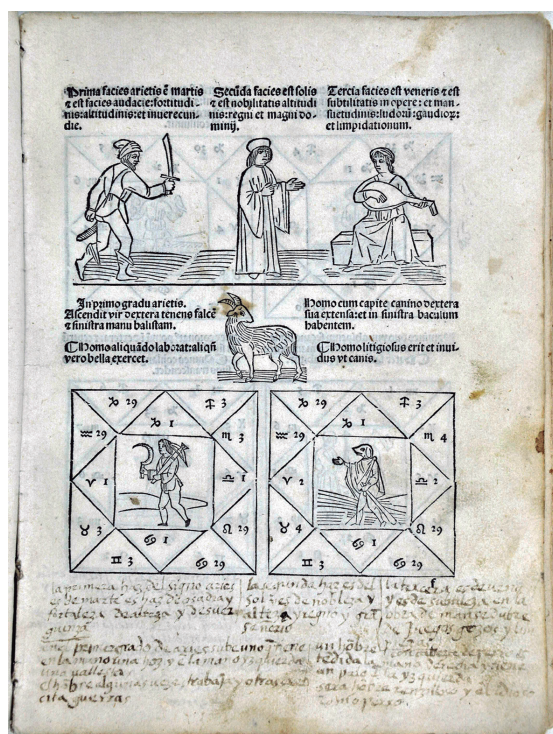 Prima facies arietis ē martis
⁊ est facies audacie: fortitudi
nis: altitudinis: et inuerecun
die.
Secūda facies est solis
⁊ est nobilitatis altitudi
nis: regni et magni do-
minij.
Tercia facies est veneris ⁊ est
subtilitatis in opere: et man-
suetudinis: ludorū: gaudioꝝ:
et limpidationum.
In primo gradu arietis.
Ascendit vir dextera tenens falcē
⁊ sinistra manu balistam.
¶ Homo aliquādo laborat: aliqñ
vero bella exercet.
Homo cum capite canino dextera
sua extensa: et in sinistra baculum
habentem.
¶ Homo litigiosus erit et inui-
dus vt canis.
♑ 29
♐ 3
♒ 29
♑ 1
♏ 3
♈ 1
♎ 1
♉ 3
♋ 1
♌ 29
♊ 3
♋ 29
♑ 29
♐ 3
♒ 29
♑ 1
♏ 4
♈ 2
♎ 2
♉ 4
♋ 1
♌ 29
♊ 3
♋ 29
la primera haz del signo aries
es de marte es haz de osadia y
fortaleza de alteza y desver
la segunda haz es del
sol y es de nobleza y
alteza y regno y
señorio
la tercera es de venus
y es de sotileza en la
obra de mansedubre
de juegos gozos y
en el primer grado de aries sube uno q tiene
en la mano una hoz y e la mano yzquierda
una vallesta
el hōbre algunas vezes trabaja y otras
guerras
un hōbre cabeça de perro
tēdida la mano derecha y tiene
un palo e la yzquierda
sera hōbre
como perro.